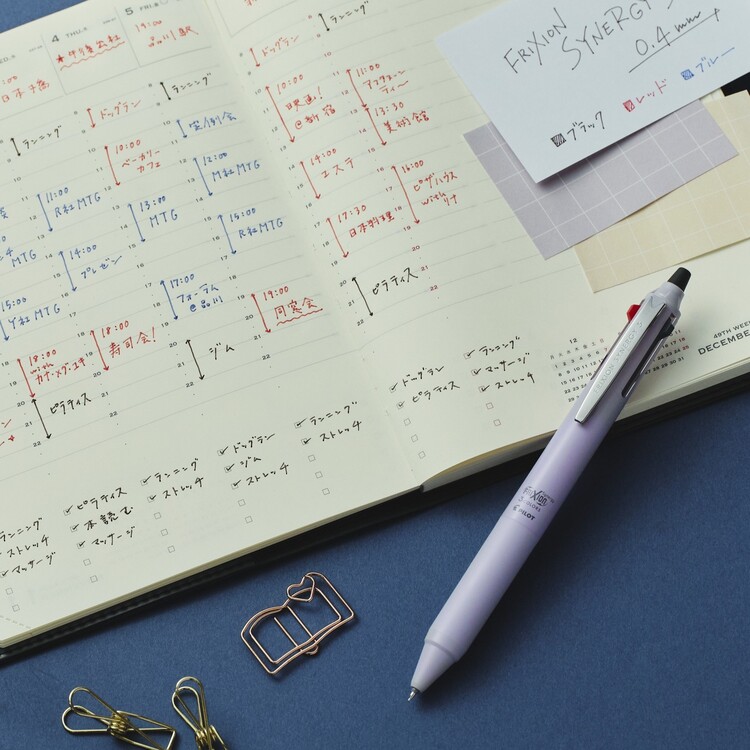 4 THU.
5 FRI.
19:00
品川駅
ランニング
ドッグラン
ランニング
ドッグラン
ランニング
10:00
ベーカリー
カフェ
11:00
R社MTG
13:00
MTG
12:00
M社MTG
14:00
プレゼン
15:00
R社MTG
MTG
15:00
Y社MTG
17:00
フォーラム
@品川
18:00
18:00
寿司会!
19:00
同窓会
ピラティス
ジム
10:00
映画!
@新宿
11:00
アフタヌーン
ティー
13:30
美術館
14:00
エステ
16:00
ピザハウス
with リナ
17:30
日本料理
ピラティス
ランニング
ストレッチ
マッサージ
ピラティス
本読む
マッサージ
ランニング
ストレッチ
ドッグラン
ジム
ストレッチ
ランニング
ストレッチ
ドッグラン
ピラティス
ランニング
マッサージ
ストレッチ
FRIXION
SYNERGY 3
0.4mm
ブラック
レッド
ブルー
12
49TH WEEK
DECEMBER
FRIXION
PILOT